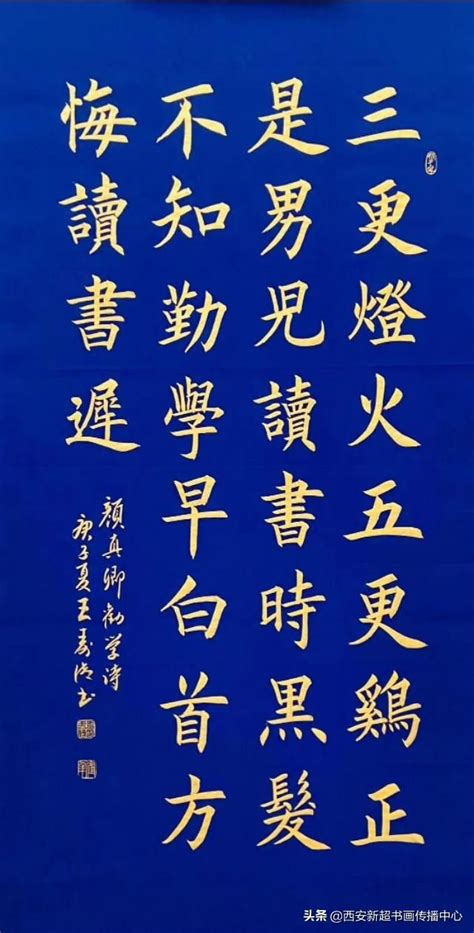 三更燈火五更鷄正
是男兒讀書時黑髮
不知勤學早白首方
悔讀書遲
顏真卿勸学诗
庚子夏王书
头条 @西安新超书画传播中心